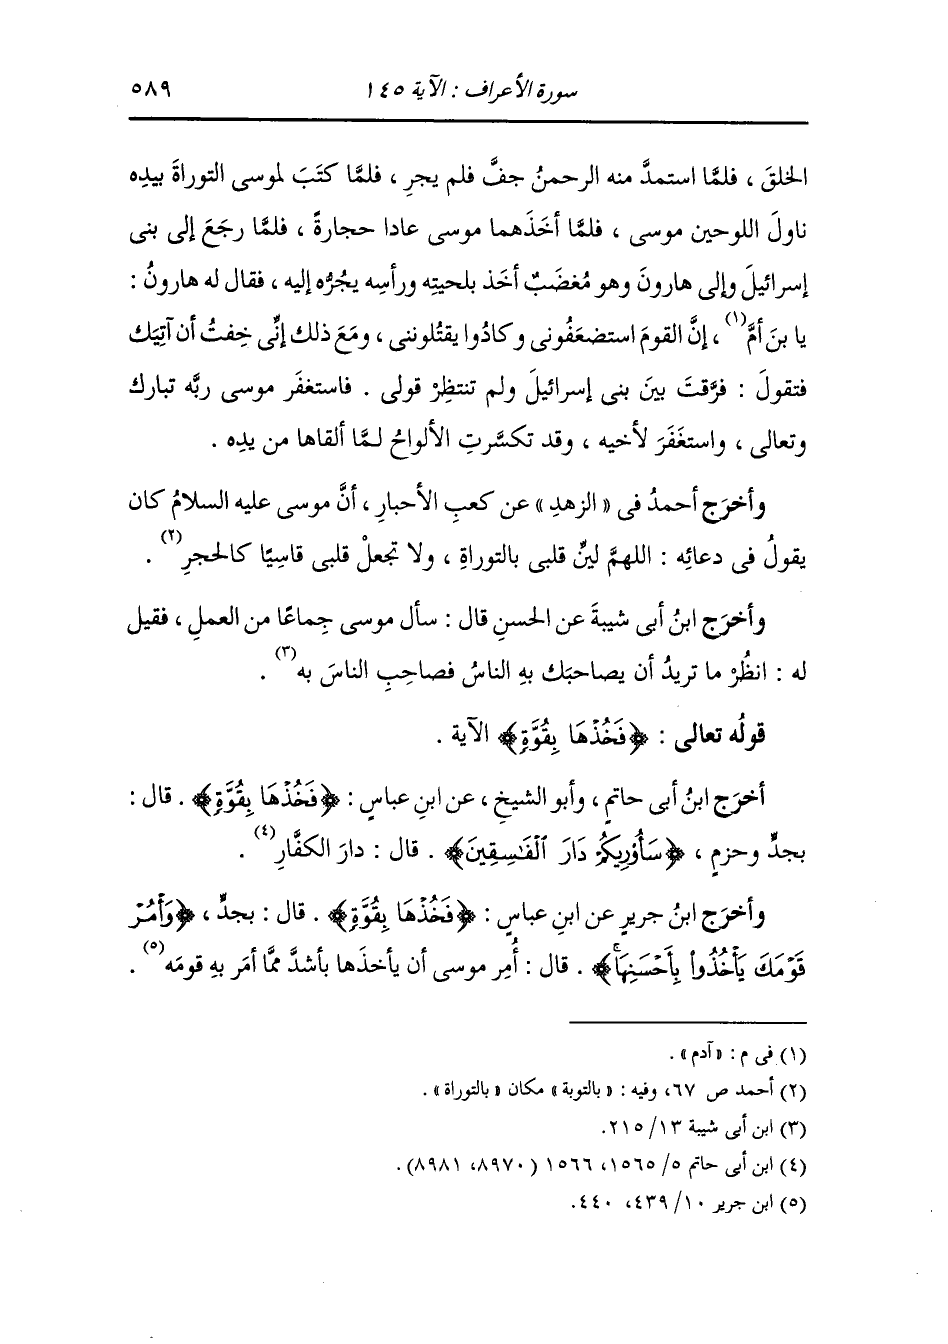 سورة الأعراف : الآية ١٤٥ ٥٨٩
الخلقَ ، فلمَّا استمدَّ منه الرحمنُ جفَّ فلم يجرِ ، فلمَّا كتَبَ لموسى التوراةَ بيدِه
ناولَ اللوحين موسى ، فلمَّا أخَذَهما موسى عادا حجارةً ، فلمَّا رجَعَ إلى بنى
إسرائيلَ وإلى هارونَ وهو مُغضَبٌ أخَذ بلحيتِه ورأسِه يجُرُّه إليه ، فقال له هارونُ :
يا بنَ أمَّ(١) ، إنَّ القومَ استضعَفُونى وكادُوا يقتُلوننى ، ومَعَ ذلك إنِّى خِفتُ أن آتِيَك
فتقولَ : فرَّقتَ بينَ بنى إسرائيلَ ولم تنتظِرْ قولى . فاستغفَر موسى ربَّه تبارك
وتعالى ، واستغَفَرَ لأخيه ، وقد تكسَّرتِ الألواحُ لـمَّا ألقاها من يدِه .
وأخرَج أحمدُ فى « الزهدِ » عن كعبِ الأحبارِ ، أنَّ موسى عليه السلامُ كان
يقولُ فى دعائِه : اللهمَّ ليِّن قلبى بالتوراةِ ، ولا تجعلْ قلبى قاسِيًا كالحجرِ(٢) .
وأخرَج ابنُ أبى شيبةَ عن الحسنِ قال : سأل موسى جِماعًا من العملِ ، فقيل
له : انظُرْ ما تريدُ أن يصاحبَك بهِ الناسُ فصاحِبِ الناسَ به(٣) .
قولُه تعالى : ﴿فَخُذْهَا بِقُوَّةٍ﴾ الآية .
أخرَج ابنُ أبى حاتمٍ ، وأبو الشيخِ ، عن ابنِ عباسٍ : ﴿فَخُذْهَا بِقُوَّةٍ﴾ . قال :
بجدٍّ وحزمٍ ، ﴿سَأُوْرِيكُمْ دَارَ ٱلْفَٰسِقِينَ﴾ . قال : دارَ الكفَّارِ(٤) .
وأخرَج ابنُ جريرٍ عن ابنِ عباسٍ : ﴿فَخُذْهَا بِقُوَّةٍ﴾ . قال : بجدٍّ ، ﴿وَأْمُرْ
قَوْمَكَ يَأْخُذُواْ بِأَحْسَنِهَاۚ﴾ . قال : أُمِر موسى أن يأخذَها بأشدَّ ممَّا أمَر بهِ قومَه(٥) .
(١) فى م : «آدم» .
(٢) أحمد ص ٦٧، وفيه : « بالتوبة » مكان « بالتوراة » .
(٣) ابن أبى شيبة ١٣/ ٢١٥.
(٤) ابن أبى حاتم ٥/ ١٥٦٥، ١٥٦٦ (٨٩٧٠، ٨٩٨١).
(٥) ابن جرير ١٠/ ٤٣٩، ٤٤٠.